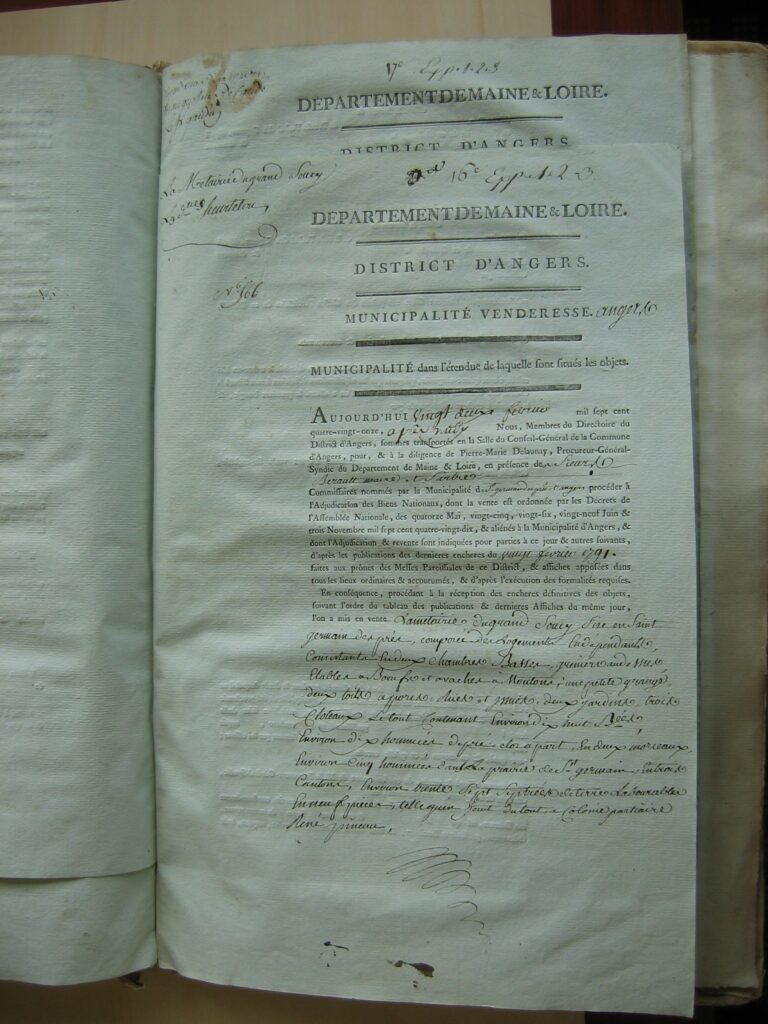 17e Exp. 1. 2. 3
DÉPARTEMENT DE MAINE & LOIRE.
DISTRICT D'ANGERS.
La Metairie du grand Soucy
16e Exp. 1. 2. 3
DÉPARTEMENT DE MAINE & LOIRE.
DISTRICT D'ANGERS.
No. 566
MUNICIPALITÉ VENDERESSE. angers
MUNICIPALITÉ dans l'étendue de laquelle sont situés les objets.
AUJOURD'HUI vingt deux février mil sept cent
quatre-vingt-onze, après midy Nous, Membres du Directoire du
District d'Angers, sommes transportés en la Salle du Conseil-Général de la Commune
d'Angers, pour, & à la diligence de Pierre-Marie Delaunay, Procureur-Général-
Syndic du Département de Maine & Loire, en présence de Sieurs
maire et
Commissaires nommés par la Municipalité de St germain des prés d'angers procéder à
l'Adjudication des Biens Nationaux, dont la vente est ordonnée par les Décrets de
l'Assemblée Nationale, des quatorze Mai, vingt-cinq, vingt-six, vingt-neuf Juin &
trois Novembre mil sept cent quatre-vingt-dix, & aliénés à la Municipalité d'Angers, &
dont l'Adjudication & revente sont indiquées pour parties à ce jour & autres suivants,
d'après les publications des dernieres encheres du vingt février 1791.
faites aux prônes des Messes Paroissiales de ce District, & affiches apposées dans
tous les lieux ordinaires & accoutumés, & d'après l'exécution des formalités requises.
En conséquence, procédant à la réception des encheres définitives des objets,
suivant l'ordre du tableau des publications & dernieres Affiches du même jour,
l'on a mis en vente La metairie du grand Soucy Sise en Saint
germain des prés, composée de Logements Independants,
Consistants En deux Chambres Basses, greniers au dessus
Etables a Boeufs et a vaches a Moutons, une petite grange,
deux toits a porcs, deux jardins, trois
Cloteaux Le tout Contenant Environ dix huit Bées
Environ dix hommées de pré clos a part, En deux morceaux,
Environ cinq hommées dans La prairie de St germain, En trois
Cantons, Environ trente Sept Septrées de terre Labourables
En neuf pieces, telle qu'en Jouit du tout a Colonie partiaire
René pineau,